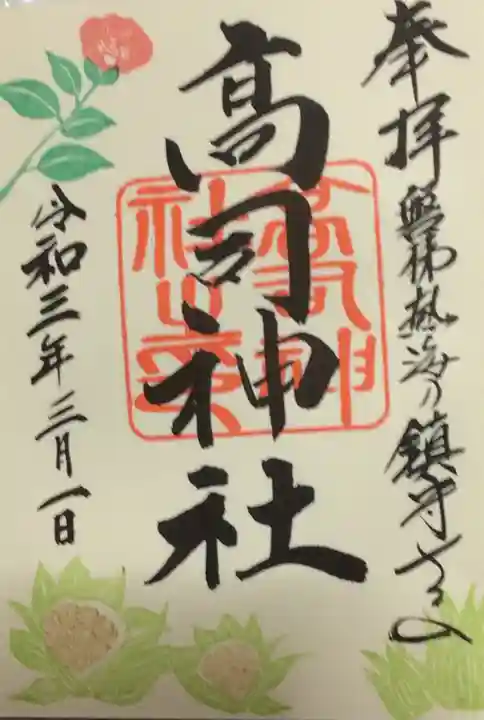 奉拝
磐梯熱海の鎮守さま
高司神社
高司神社之印
令和三年三月一日